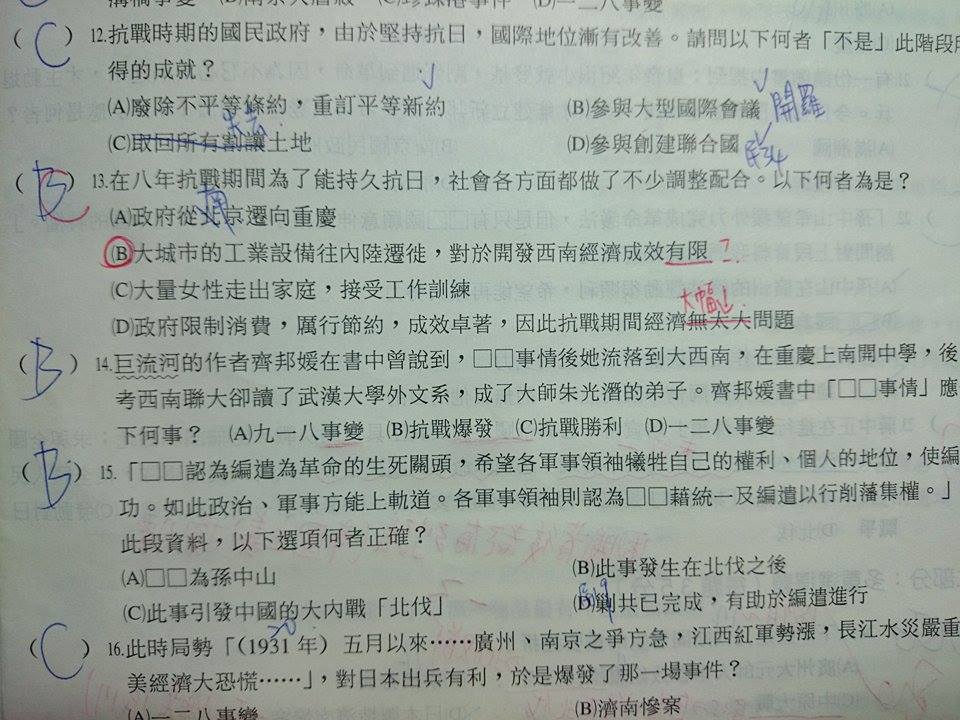 溝橋事變 (D)南京大屠殺 (C)珍珠港事件 (D)一二八事變
(C) 12.抗戰時期的國民政府，由於堅持抗日，國際地位漸有改善。請問以下何者「不是」此階段所
得的成就？
(A)廢除不平等條約，重訂平等新約 (B)參與大型國際會議 開羅
(C)取回所有割讓土地 (D)參與創建聯合國
(B) 13.在八年抗戰期間為了能持久抗日，社會各方面都做了不少調整配合。以下何者為是？
(A)政府從北京遷向重慶
(B)大城市的工業設備往內陸遷徙，對於開發西南經濟成效有限
大幅
(C)大量女性走出家庭，接受工作訓練
(D)政府限制消費，厲行節約，成效卓著，因此抗戰期間經濟無太大問題
(B) 14.巨流河的作者齊邦媛在書中曾說到，□□事情後她流落到大西南，在重慶上南開中學，後
考西南聯大卻讀了武漢大學外文系，成了大師朱光潛的弟子。齊邦媛書中「□□事情」應
下何事？ (A)九一八事變 (B)抗戰爆發 (C)抗戰勝利 (D)一二八事變
(B) 15.「□□認為編遣為革命的生死關頭，希望各軍事領袖犧牲自己的權利、個人的地位，使編
功。如此政治、軍事方能上軌道。各軍事領袖則認為□□藉統一及編遣以行削藩集權。」
此段資料，以下選項何者正確？
(A)□□為孫中山 (B)此事發生在北伐之後
(C)此事引發中國的大內戰「北伐」 (D)剿共已完成，有助於編遣進行
20
(C) 16.此時局勢「(1931 年) 五月以來……廣州、南京之爭方急，江西紅軍勢漲，長江水災嚴重
美經濟大恐慌……」，對日本出兵有利，於是爆發了那一場事件？
(A)一二八事變 (B)濟南慘案